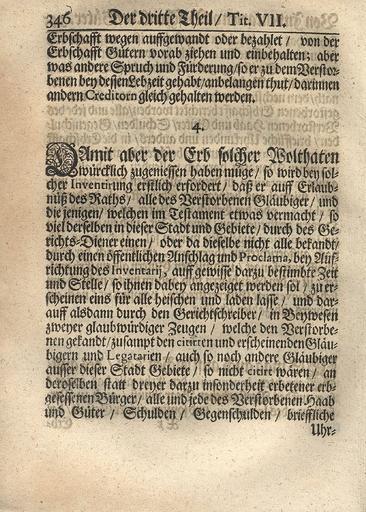 346 Der dritte Theil / Tit. VII.
Erbschafft wegen auffgewandt oder bezahlet / von der
Erbschafft Gütern vorab ziehen und einbehalten: aber
was andere Spruch und Fürderung / so er zu dem Verstor-
benen bey dessen Lebzeit gehabt / anbelangen thut / darinnen
andern Creditorn gleich gehalten werden.
4.
DAmit aber der Erb solcher Wolthaten
würcklich zugeniessen haben müge / so wird bey sol-
cher Inventirung erstlich erfordert / daß er auff Erlaub-
nüß des Raths / alle des Verstorbenen Gläubiger / und
die jenigen / welchen im Testament etwas vermacht / so
viel derselben in dieser Stadt und Gebiete / durch des Ge-
richts-Diener einen / oder da dieselbe nicht alle bekandt /
durch einen öffentlichen Anschlag und Proclama, bey Auf-
richtung des Inventarij, auff gewisse darzu bestimbte Zeit
und Stelle / so ihnen dabey angezeiget werden sol / zu er-
scheinen eins für alle heischen und laden lasse / und dar-
auff alsdann durch den Gerichtschreiber / in Beywesen
zweyer glaubwürdiger Zeugen / welche den Verstorbe-
nen gekandt / zusampt den citirten und erscheinenden Gläu-
bigern und Legatarien / auch so noch andere Gläubiger
ausser dieser Stadt Gebiete / so nicht citirt wären / an
deroselben statt dreyer darzu insonderheit erbetener erb-
gesessenen Bürger / alle und jede des Verstorbenen Haab
und Güter / Schulden / Gegenschulden / brieffliche
Uhr-